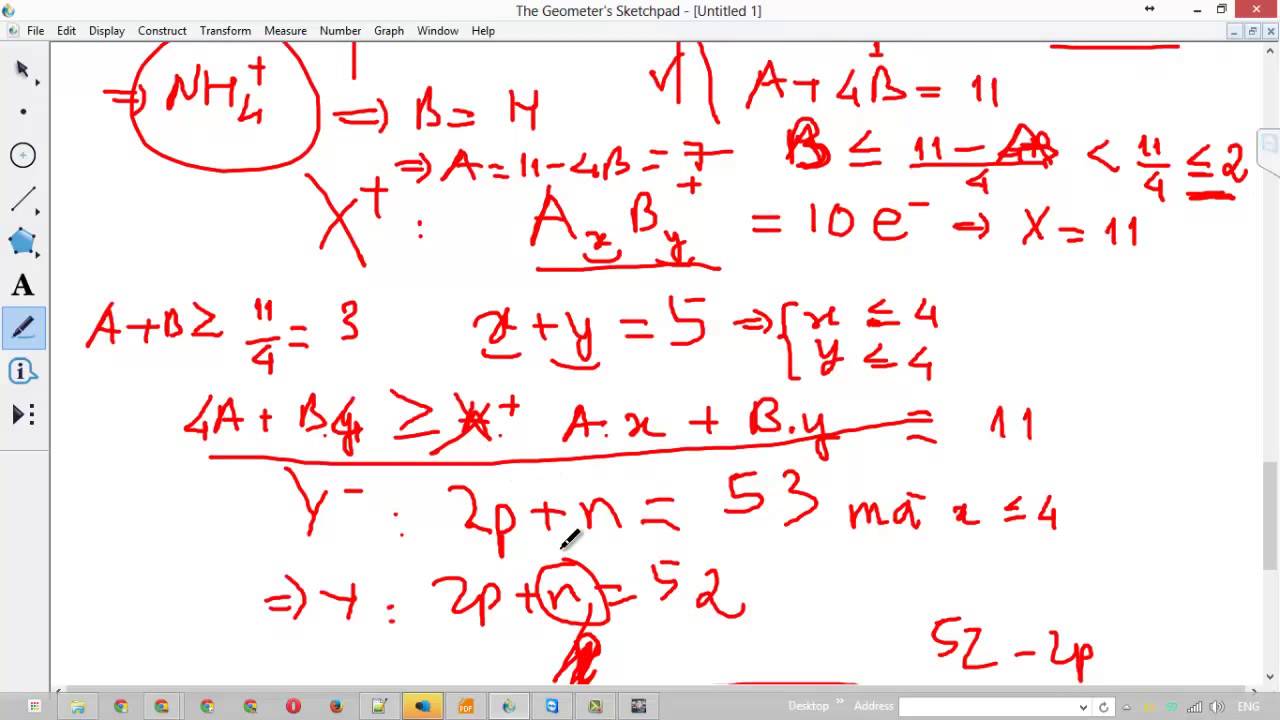 The Geometer's Sketchpad - [Untitled 1]
File Edit Display Construct Transform Measure Number Graph Window Help
⇒ NH₄⁺
A + 4B = 11
⇒ B = H
B ≤ (11 - )/4 < 11/4 ≤ 2
⇒ A = 11 - 4B = 7
X⁺ : AₓBᵧ⁺ = 10 e⁻ ⇒ X = 11
A + B ≥ 11/4 = 3
x + y = 5 ⇒ { x ≤ 4
y ≤ 4
4A + B.4 ≥ A.x + B.y = 11
Y⁻ : 2p + n = 53 mà x ≤ 4
⇒ Y : 2p + n = 52
52 - 2p
A
Desktop » Address ENG